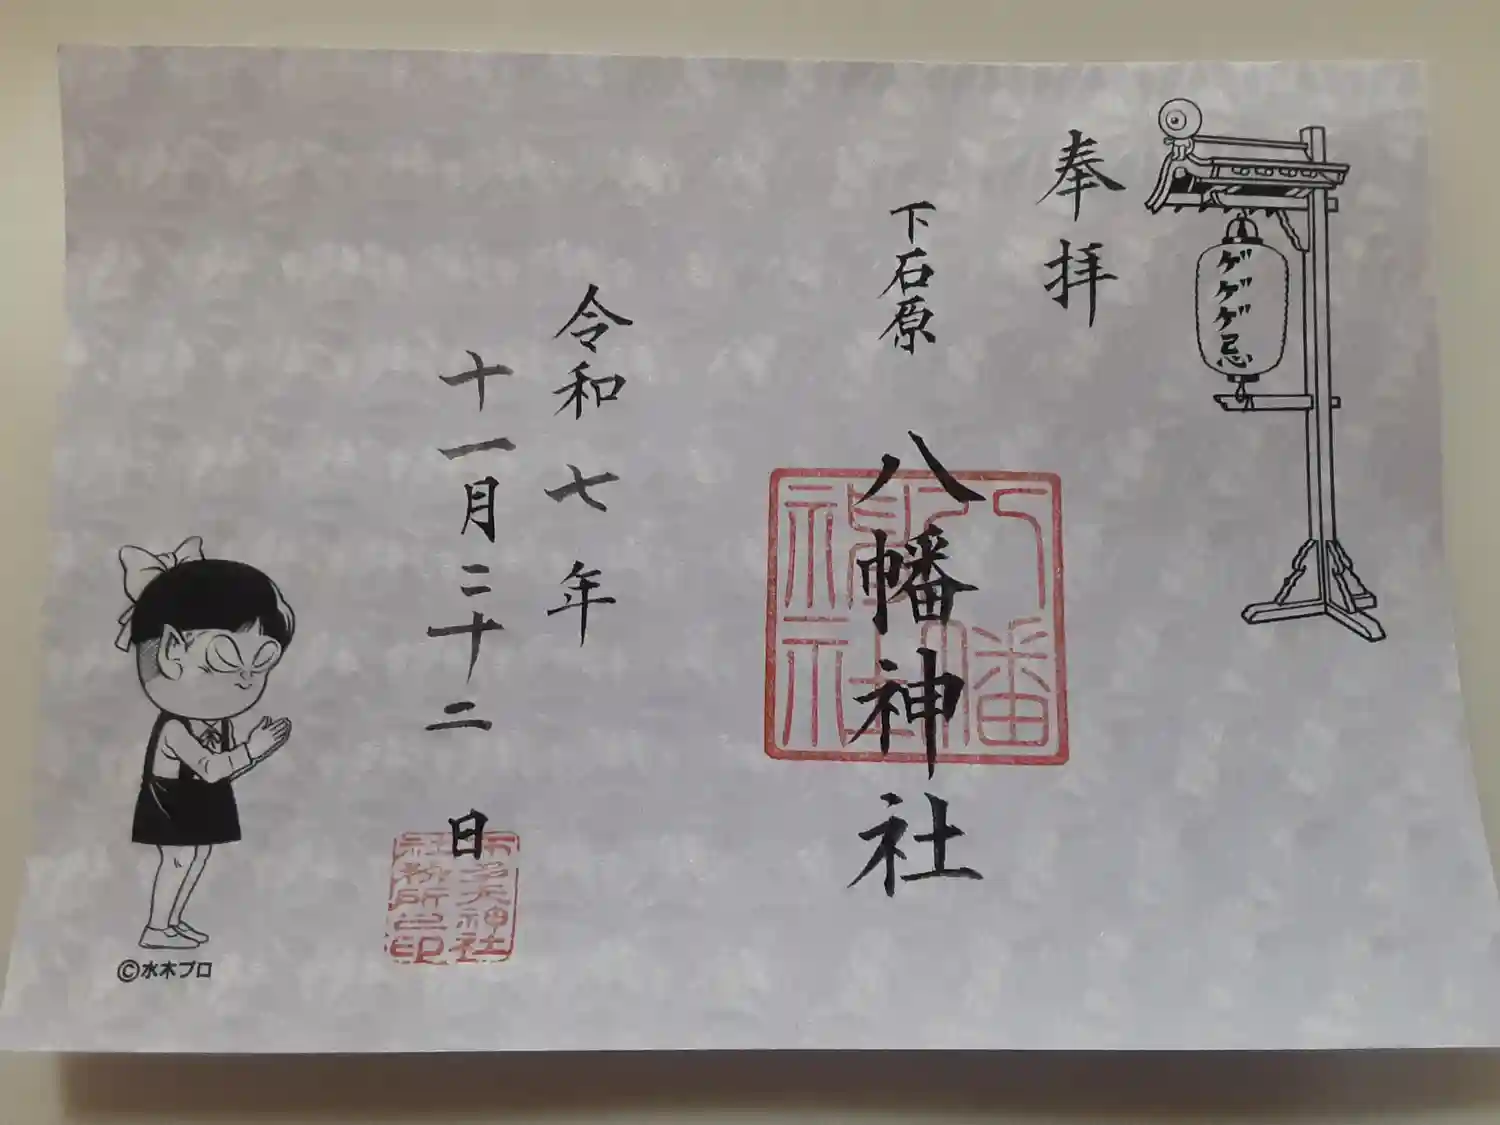 奉拝
ゲゲゲ忌
下石原
八幡神社
八幡神社
令和七年
十一月二十二日
布多天神社
社務所之印
©水木プロ